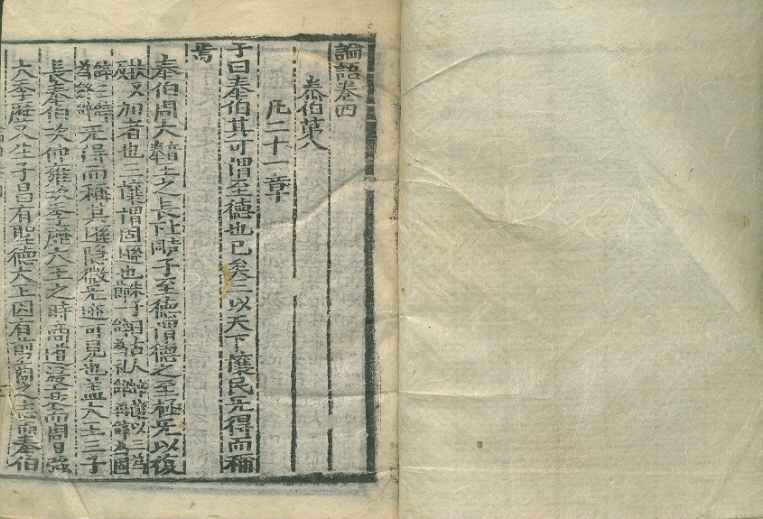 論語卷四
泰伯第八
凡二十一章
子曰泰伯其可謂至德也已矣三以天下讓民无得而稱
焉
泰伯周大王之長子至德謂德之至極无以復
加者也三讓謂固遜也
无得而稱其遜隱微无迹可見也盖大王三子
長泰伯次仲雍次季歷大王之時商道浸衰而周日強
大季歷又生子昌有聖德大王因有翦商之志而泰伯